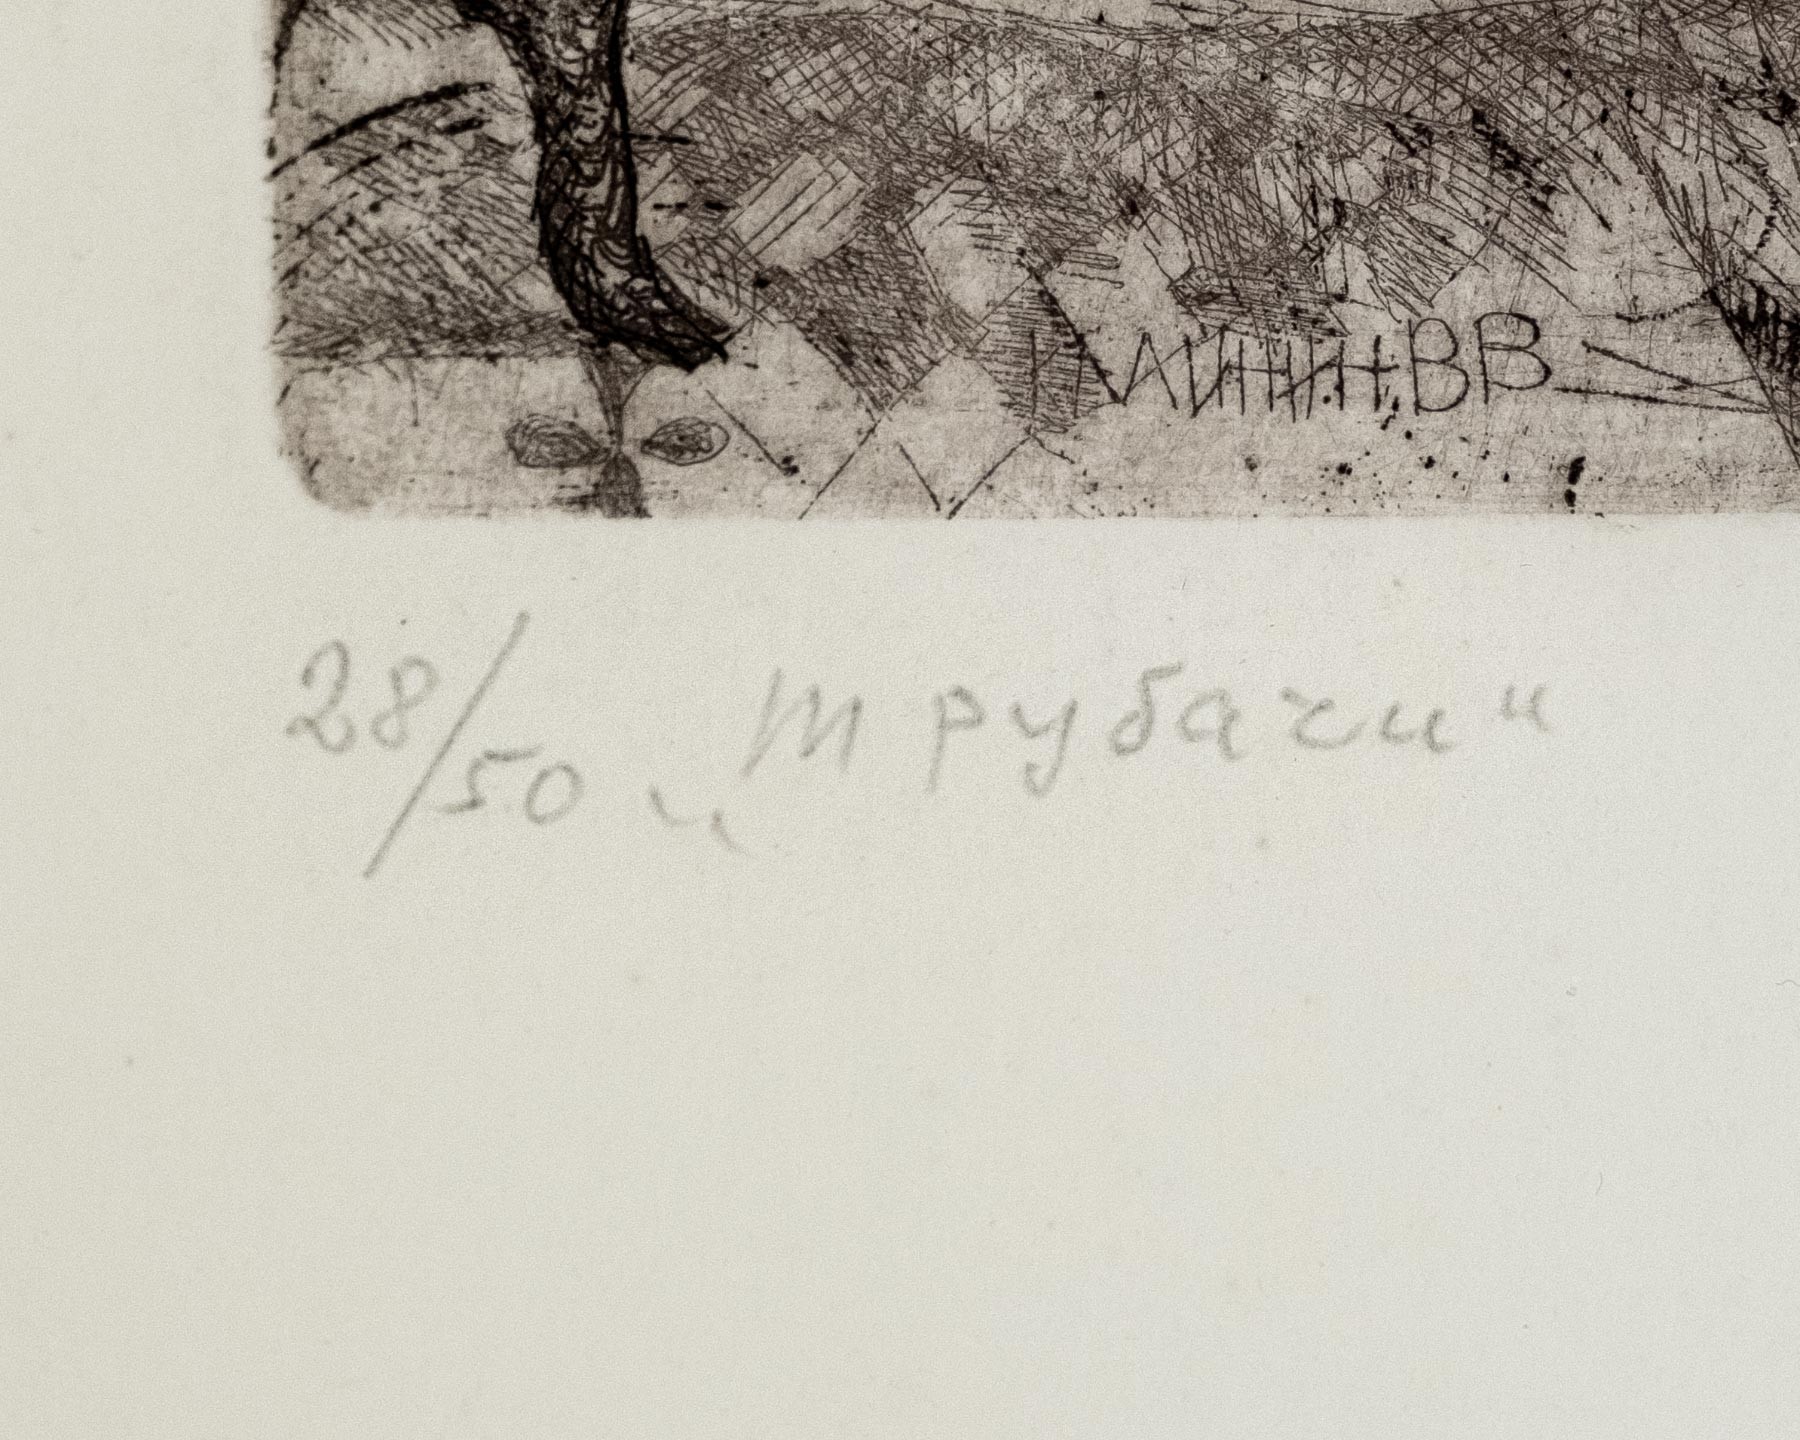 КАЛИНИН.ВВ
28/50 „Трубачи“